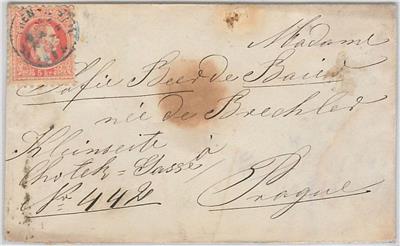 Madame
Sofie Beer de Baier
née de Brechler
à
Kleinseite
Chotek-Gasse
Nr 442
Prague